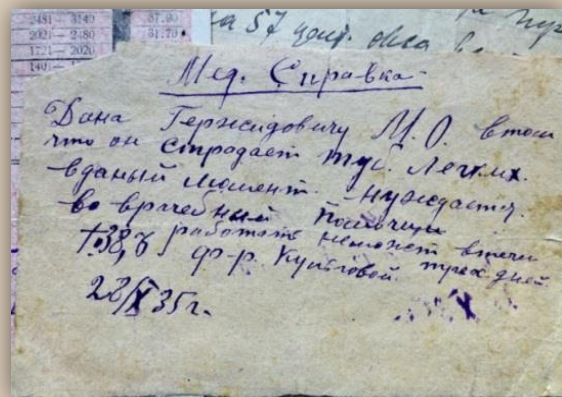 2481 — 3140 37.90
2021 — 2480 31.70
1721 — 2020
1401 —
за 57
Мед. Справка
Дана Гержидовичу М.О. втом
что он страдает туб. Легких.
вданый момент. нуждается.
во врачебный Помощи
t°38,8 работать неможет втечен
трех дней
ф-р.
28/X 35г.